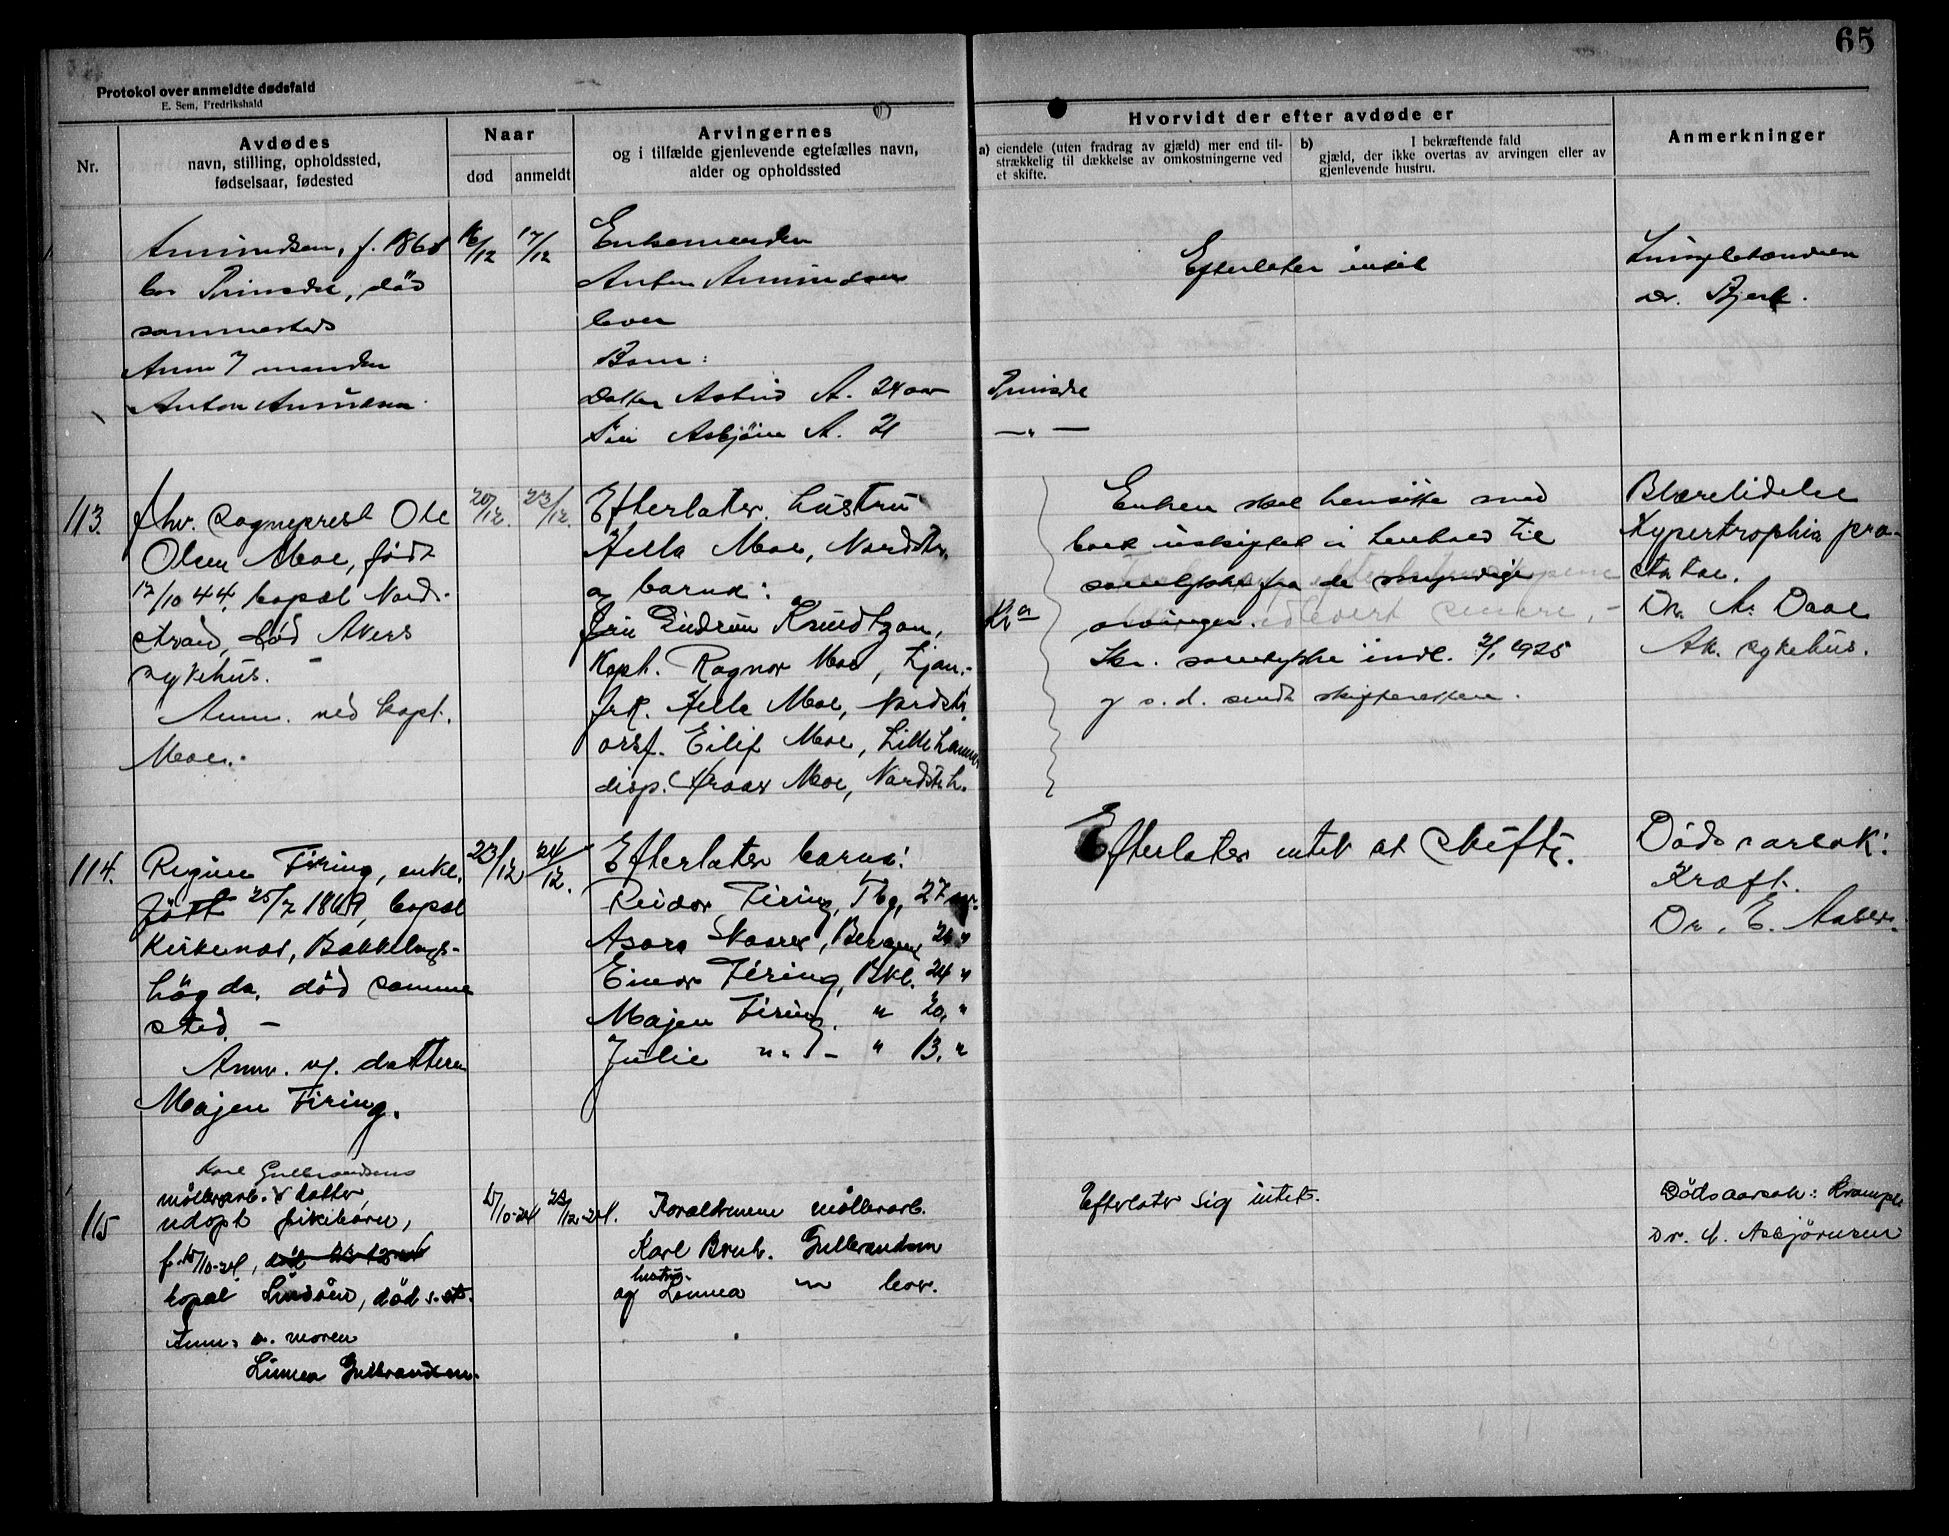 65
Protokol over anmeldte dødsfald
E. Sem, Fredrikshald
Nr.
Avdødes
navn, stilling, opholdssted,
fødselsaar, fødested
Naar
død
anmeldt
Arvingernes
og i tilfælde gjenlevende egtefælles navn,
alder og opholdssted
Hvorvidt der efter avdøde er
a) eiendele (uten fradrag av gjæld) mer end til-
strækkelig til dækkelse av omkostningerne ved
et skifte.
b) I bekræftende fald
gjæld, der ikke overtas av arvingen eller av
gjenlevende hustru.
Anmerkninger
Amundsen, f. 186
bor Prinsdal, død
sammesteds
Anm. manden
Anton Amundsen
16/12
17/12
Enkemanden
Anton Amundsen
lever
Barn:
Datter Astrid A. 24 aar Prinsdal
Søn Asbjørn A. 21 — " —
Efterlater intet
Lungebetændelse
Dr. Bjerk.
113.
fhv. sogneprest Ole
Olsen Moe, født
17/10 44, bopæl Nord-
strand, død Akers
sykehus. —
Anm. ved kapt.
Moe.
20/12.
23/12.
Efterlater hustru
Hella Moe, Nordstr.
og barna:
Fru Gudrun Knudtzon, Kr.a
Kapt. Ragnar Moe, Ljan.
Frk. Hella Moe, Nordstr.
orsf. Eilif Moe, Lillehammer
disp. Hroar Moe, Nordstr.h.
Enken skal hensitte med
boet uskiftet i henhold til
samtykke fra de myndige
arvinger.
Skr. samtykke indl. 2/1 1925
og s. d. sendt skifteretten.
Blærelidelse
Hypertrophia pro-
statae.
Dr. A. Daae
Ak. sykehus.
114.
Regine Firing, enke,
født 25/7 1869, bopæl
Kirkenæs, Bækkelags-
høgda, død samme
sted. —
Anm. af datteren
Majen Firing.
23/12
24/12.
Efterlater barna:
Reidar Firing, Tbg, 27 aar.
Asora Skaarer, Bergen 26 "
Einar Firing, Bkl. 24 "
Majen Firing. " 20, "
Julie " - " 13, "
Efterlater intet at skifte.
Dødsaarsak:
Kræft.
Dr. E. Aaser.
115
Karl Gulbrandsens
møllerarb. datter,
udøpt pikebarn,
f. 15/10-24,
bopæl Lindåen, død s. sts.
Anm. a. moren
Linnea Gulbrandsen.
17/10-24
29/12-24.
Foræld­rene møllerarb.
Karl Brunh. Gulbrandsen
og hustru Linnea — " — lever.
Efterlater sig intet.
Dødsaarsak: Krampe
Dr. A. Asbjørnsen